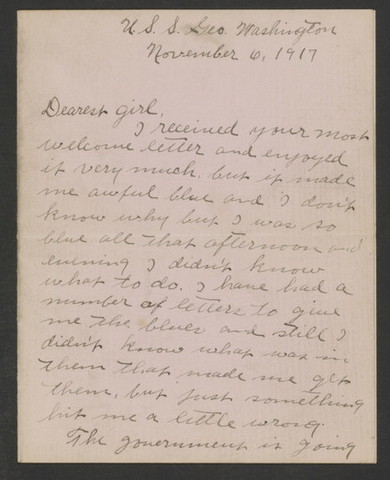 U.S.S. Geo. Washington
November 6, 1917
Dearest girl,
I received your most
welcome letter and enjoyed
it very much, but it made
me awful blue and I don't
know why but I was so
blue all that afternoon and
evening I didn't know
what to do. I have had a
number of letters to give
me the blues and still I
didn't know what was in
them that made me get
them, but just something
hit me a little wrong.
The government is going